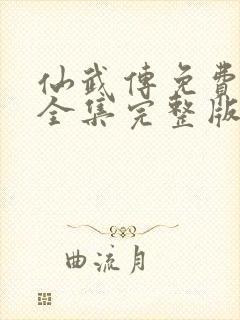 仙武傳免費
全集完整版
曲流月